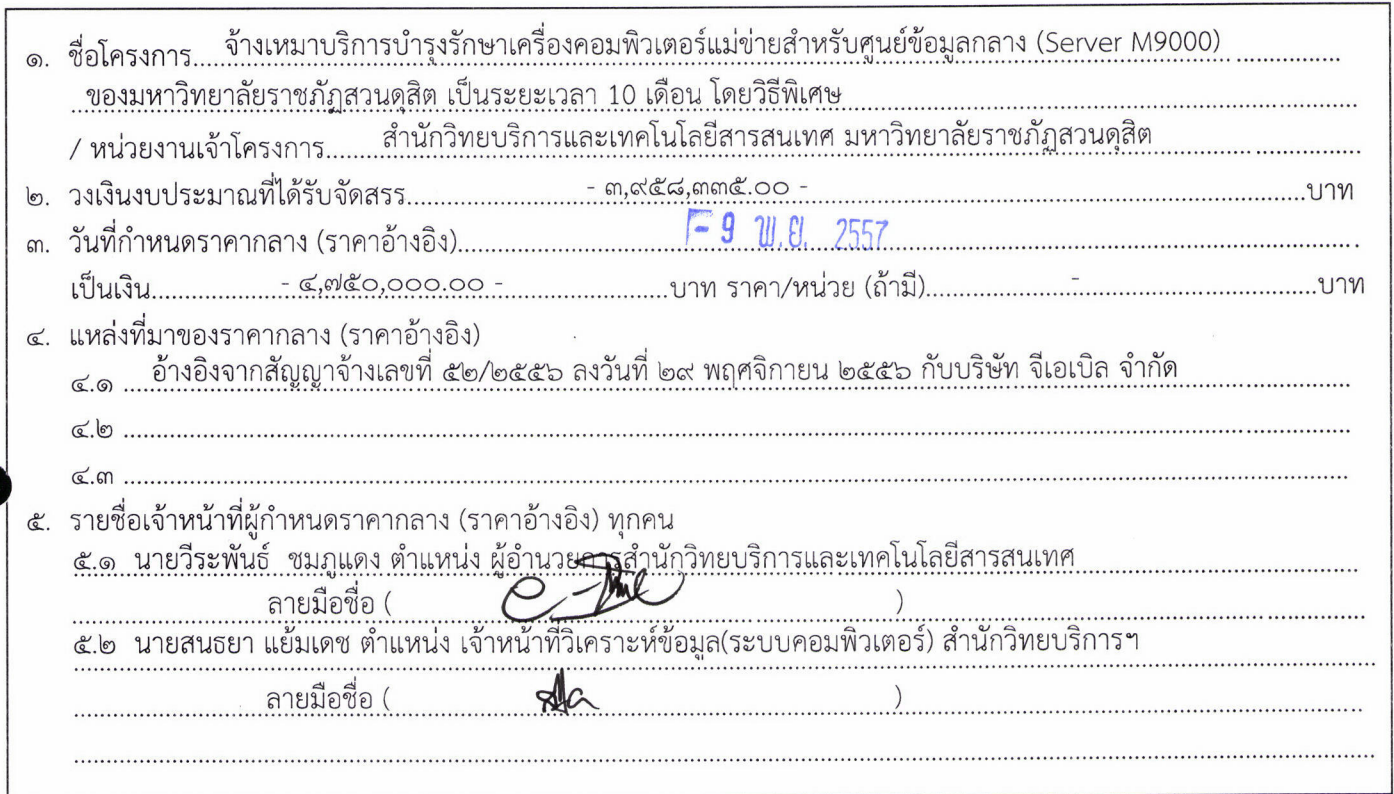 ๑. ชื่อโครงการ.....จ้างเหมาบริการบำรุงรักษาเครื่องคอมพิวเตอร์แม่ข่ายสำหรับศูนย์ข้อมูลกลาง (Server M9000)
ของมหาวิทยาลัยราชภัฏสวนดุสิต เป็นระยะเวลา 10 เดือน โดยวิธีพิเศษ
/ หน่วยงานเจ้าโครงการ.....สำนักวิทยบริการและเทคโนโลยีสารสนเทศ มหาวิทยาลัยราชภัฏสวนดุสิต
๒. วงเงินงบประมาณที่ได้รับจัดสรร.....- ๓,๙๕๘,๓๓๕.๐๐ -.....บาท
๓. วันที่กำหนดราคากลาง (ราคาอ้างอิง).....- 9 พ.ย. 2557
เป็นเงิน.....- ๔,๗๕๐,๐๐๐.๐๐ -.....บาท ราคา/หน่วย (ถ้ามี).....-.....บาท
๔. แหล่งที่มาของราคากลาง (ราคาอ้างอิง)
๔.๑ อ้างอิงจากสัญญาจ้างเลขที่ ๕๒/๒๕๕๖ ลงวันที่ ๒๙ พฤศจิกายน ๒๕๕๖ กับบริษัท จีเอเบิล จำกัด
๔.๒
๔.๓
๕. รายชื่อเจ้าหน้าที่ผู้กำหนดราคากลาง (ราคาอ้างอิง) ทุกคน
๕.๑ นายวีระพันธ์ ชมภูแดง ตำแหน่ง ผู้อำนวยการสำนักวิทยบริการและเทคโนโลยีสารสนเทศ
ลายมือชื่อ ( )
๕.๒ นายสนธยา แย้มเดช ตำแหน่ง เจ้าหน้าที่วิเคราะห์ข้อมูล(ระบบคอมพิวเตอร์) สำนักวิทยบริการฯ
ลายมือชื่อ ( )